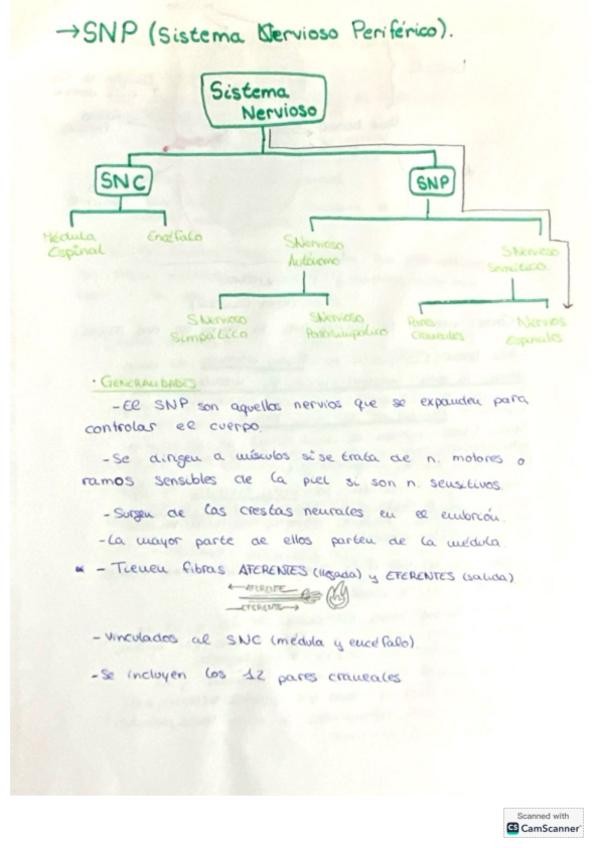 → SNP (Sistema Nervioso Periférico).
Sistema
Nervioso
SNC
SNP
Médula
Espinal
Encéfalo
S Nervioso
Autónomo
S Nervioso
Somático
S Nervioso
Simpático
S Nervioso
Parasimpático
Pares
Craneales
Nervios
Espinales
· GENERALIDADES
- El SNP son aquellos nervios que se expanden para
controlar el cuerpo.
- Se dirigen a músculos si se trata de n. motores o
ramos sensibles de la piel si son n. sensitivos.
- Surgen de las crestas neurales en el embrión.
- La mayor parte de ellos parten de la médula.
- Tienen fibras AFERENTES (llegada) y EFERENTES (salida)
AFERENTE
EFERENTE
- Vinculados al SNC (médula y encéfalo)
- Se incluyen los 12 pares craneales
Scanned with
CS CamScanner